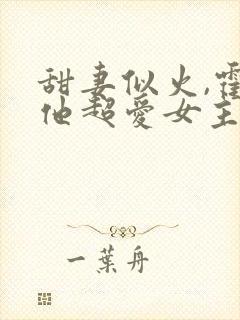 甜妻似火,霍
他超爱女主
一葉舟